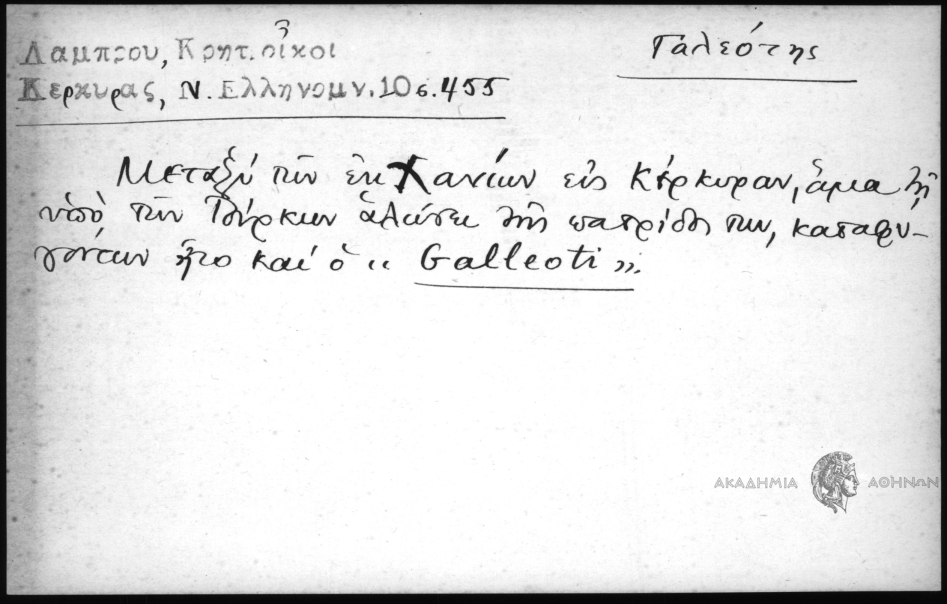 Λαμπρου, Κρητ. οἶκοι
Κερκυρας, Ν. Ελληνομν. 10 σ. 455
Γαλεότης
Μεταξύ τῶν ἐκ Χανίων εἰς Κέρκυραν, ἅμα τῇ
ὑπὸ τῶν Τούρκων ἁλώσει τῆς πατρίδος των, καταφυ-
γόντων ἦτο καί ὁ « Galleoti ».
ΑΚΑΔΗΜΙΑ ΑΘΗΝΩΝ